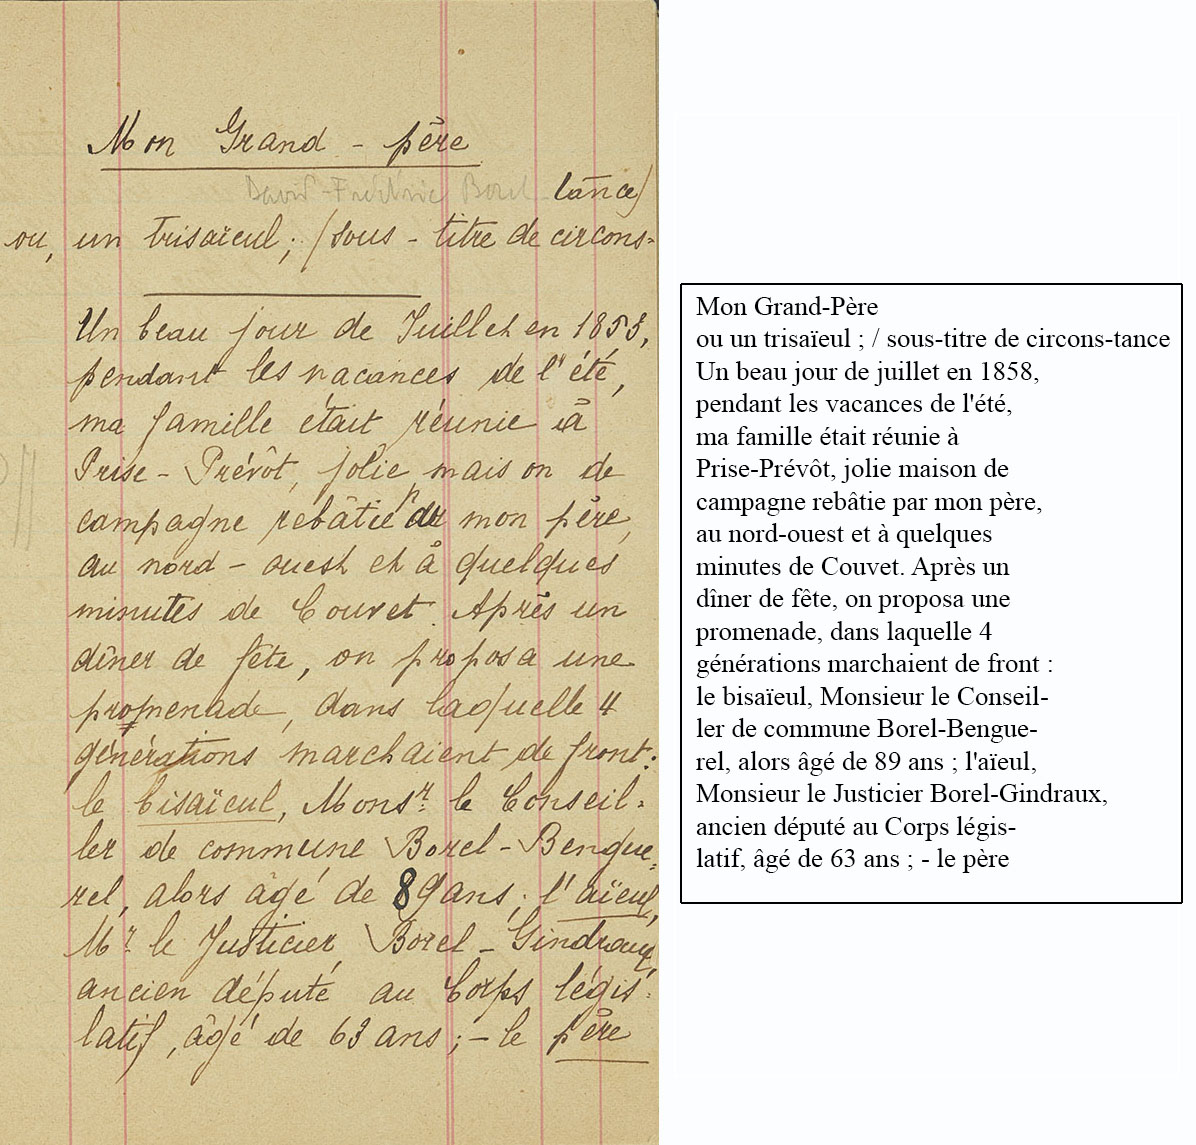 Mon Grand - père
David-Frédéric Borel
tance/
ou, un trisaïeul; /sous - titre de circons=
Un beau jour de Juillet en 1853,
pendant les vacances de l'été,
ma famille était réunie à
Prise - Prévôt, jolie maison de
campagne rebâtie par mon père,
au nord - ouest et à quelques
minutes de Couvet. Après un
dîner de fête, on proposa une
promenade, dans laquelle 4
générations marchaient de front:
le bisaïeul, Monsr. le Conseil=
ler de commune Borel-Bengue=
rel, alors âgé de 89 ans; l'aïeul,
Mr. le Justicier Borel-Gindraux,
ancien député au Corps légis=
latif, âgé de 63 ans; - le père
Mon Grand-Père
ou un trisaïeul ; / sous-titre de circons-tance
Un beau jour de juillet en 1858,
pendant les vacances de l'été,
ma famille était réunie à
Prise-Prévôt, jolie maison de
campagne rebâtie par mon père,
au nord-ouest et à quelques
minutes de Couvet. Après un
dîner de fête, on proposa une
promenade, dans laquelle 4
générations marchaient de front :
le bisaïeul, Monsieur le Conseil-
ler de commune Borel-Bengue-
rel, alors âgé de 89 ans ; l'aïeul,
Monsieur le Justicier Borel-Gindraux,
ancien député au Corps légis-
latif, âgé de 63 ans ; - le père